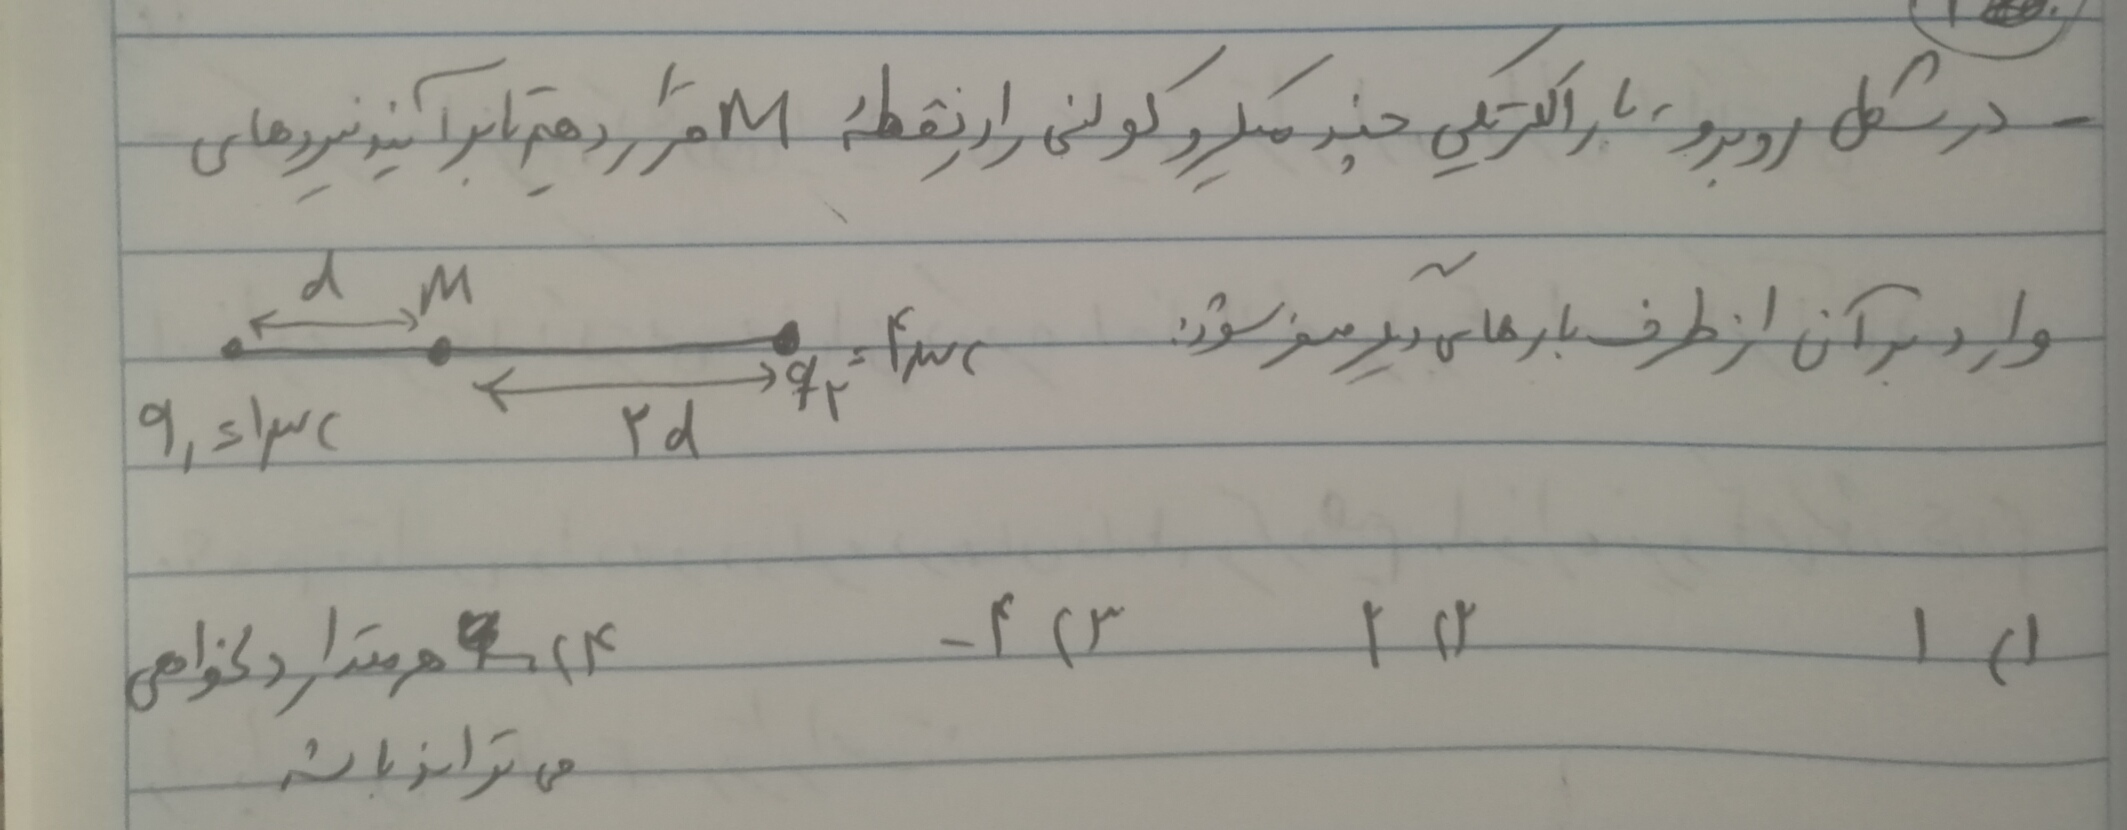 - در شکل روبرو، بار الکتریکی چند میکروکولنی را در نقطهٔ M قرار دهیم تا برآیند نیروهای
وارد بر آن از طرف بارهای دیگر صفر شود:
d M
q₂ = ۴μc
q₁ = ۱μc ۲d
۱) ۱ ۲) ۲ ۳) ۴- ۴) هر مقدار دلخواهی
می تواند باشد